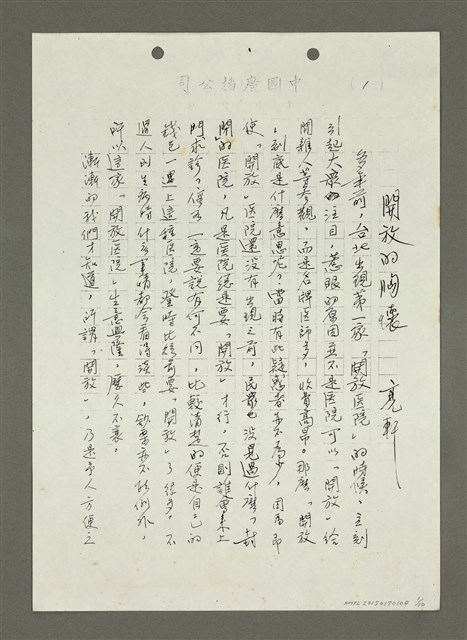 中國廣播公司
(1)
開放的胸懷　亮軒
多年前，台北出現第一家「開放医院」的時候，立刻
引起大眾的注目，惹眼的原因並不是医院可以「開放」給
閒雜人等參觀，而是名牌医師多，收費高昂。那麼「開放
」到底是什麼意思呢？當時有此疑惑者並不為少，因為即
使「開放」医院還没有出現之前，民眾也没見過什麼「封
閉」的医院，凡是医院總是要「開放」才行，否則誰會來上
門求診？倘若一定要說有何不同，比較清楚的便是自己的
錢包一遇上這種医院，登時比從前要「開放」了很多。不
過人到生病時什么事情都会看得淡些，鈔票亦不能例外，
所以這家「開放医院」生意興隆，歷久不衰。
漸漸的我們才知道，所謂「開放」，乃是予人方便之
NMTL20150170104